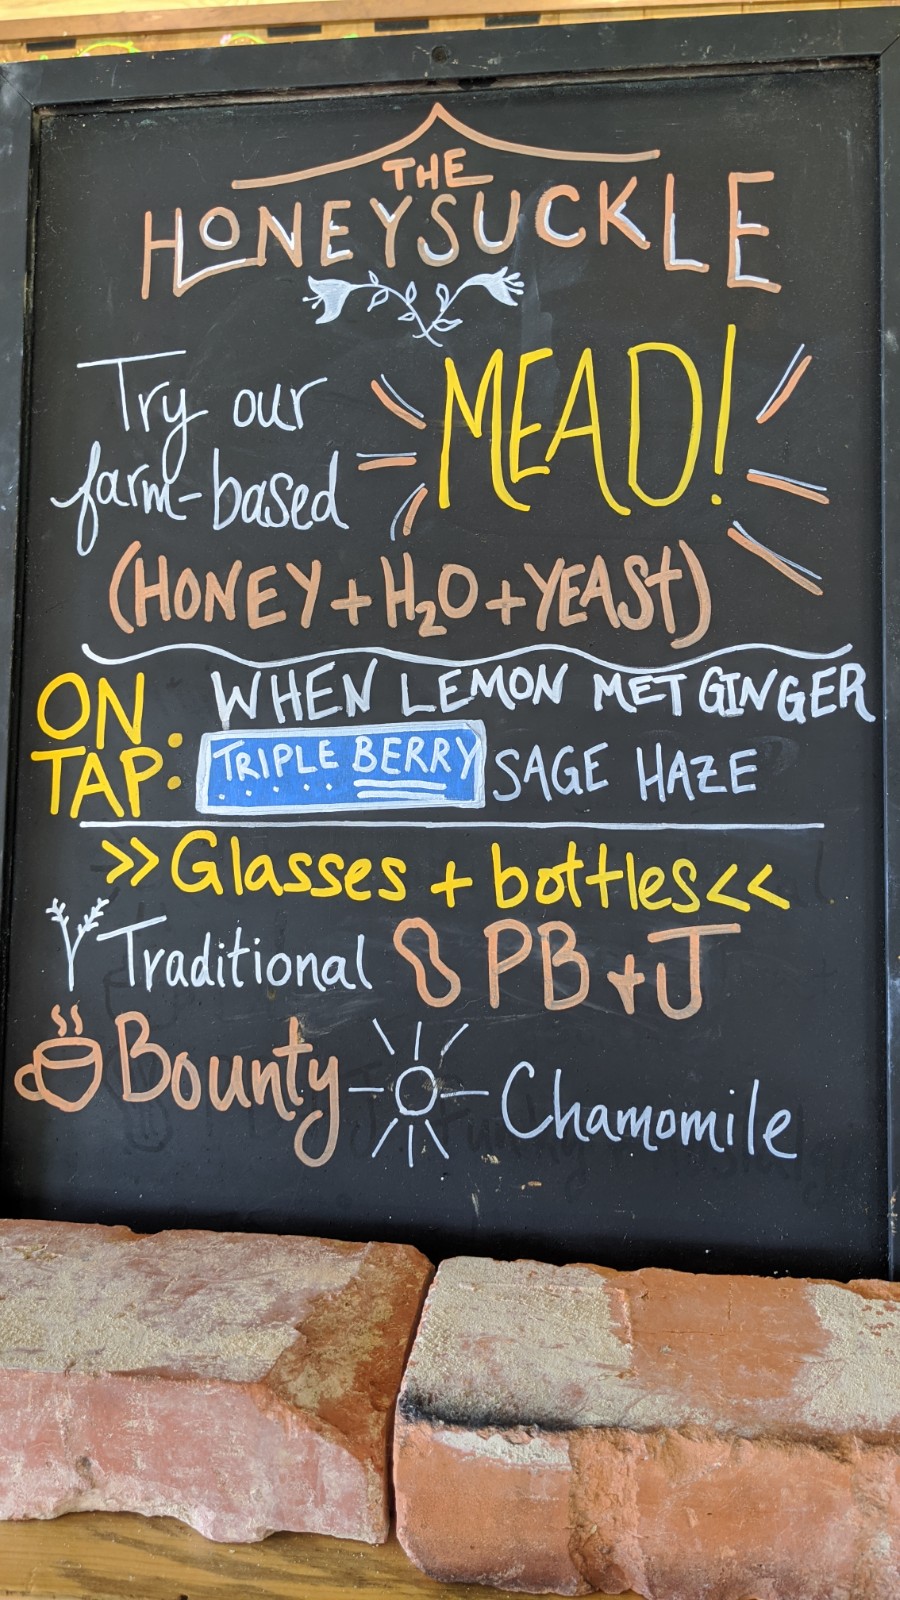 THE
HONEYSUCKLE
Try our MEAD!
farm-based
(HONEY + H₂O + YEAST)
ON TAP: WHEN LEMON MET GINGER
TRIPLE BERRY SAGE HAZE
>> Glasses + bottles <<
Traditional PB + J
Bounty Chamomile